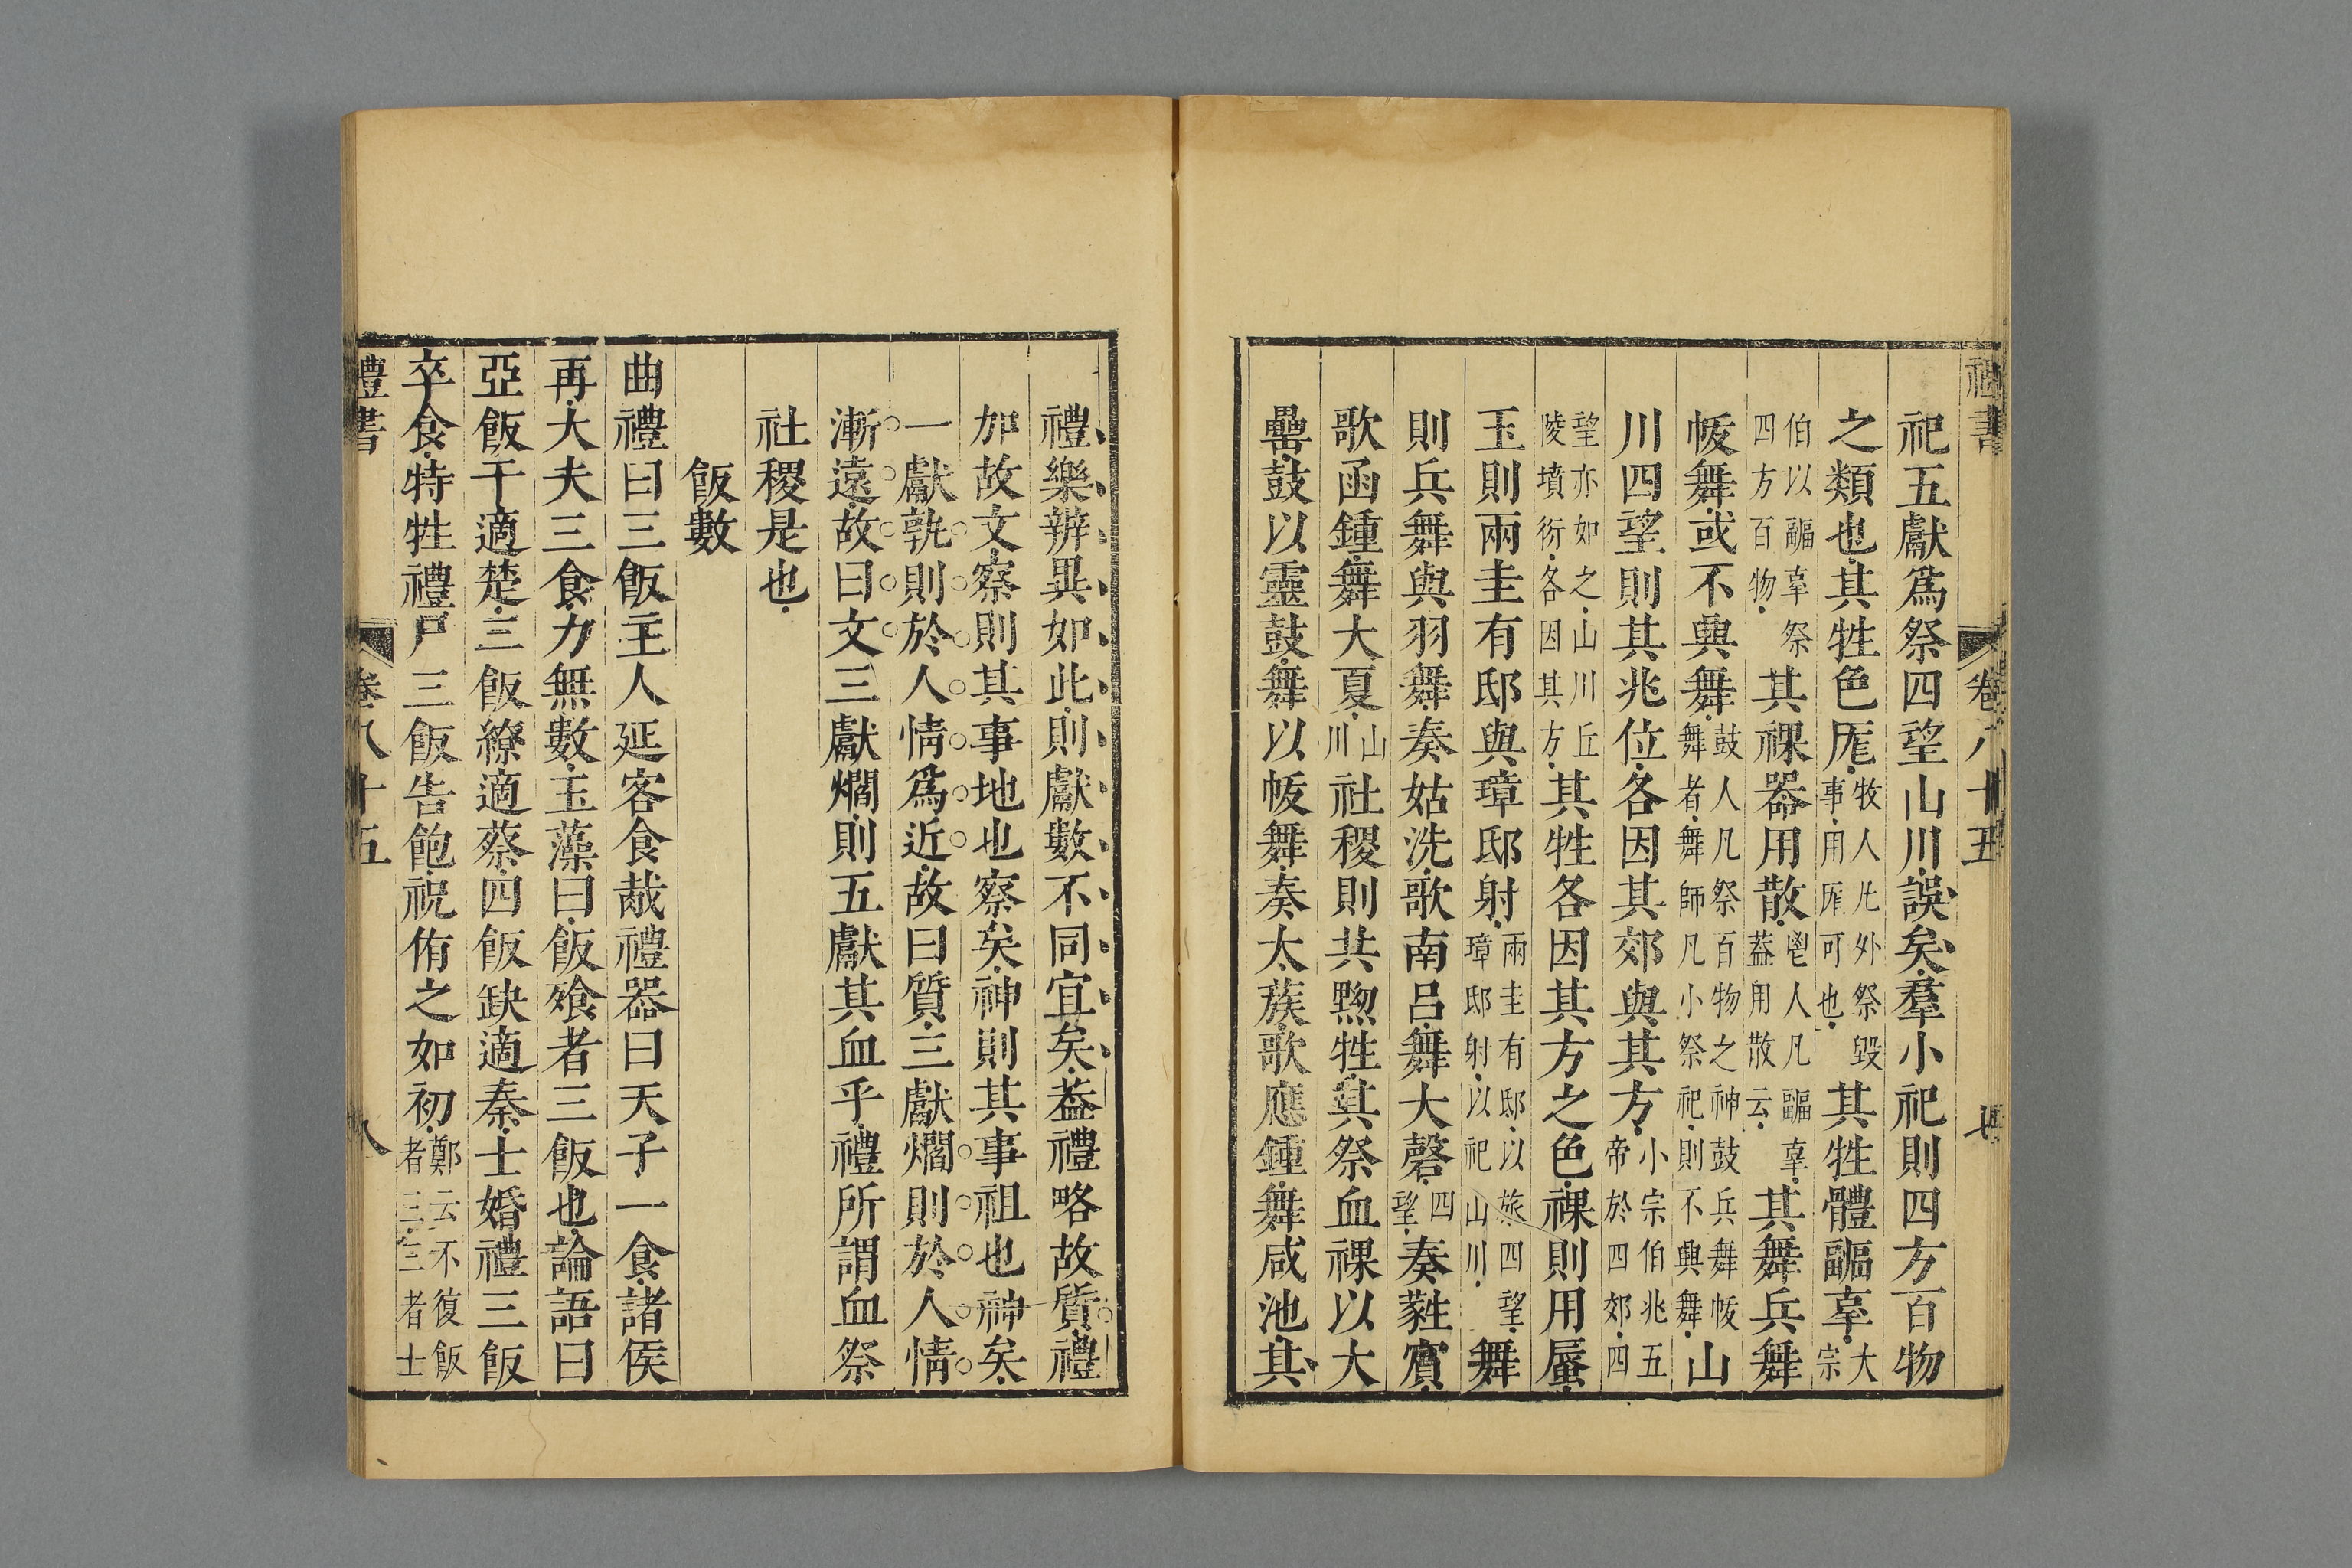 禮書 卷八十五 七
祀五獻爲祭四望山川誤矣羣小祀則四方百物
之類也其牲色厖牧人凡外祭毀事用厖可也其牲體疈辜大宗
伯以疈辜祭四方百物其祼器用散鬯人凡疈辜蓋用散云其舞兵舞
帗舞或不興舞鼓人凡祭百物之神鼓兵舞帗舞者舞師凡小祭祀則不興舞山
川四望則其兆位各因其郊與其方小宗伯兆五帝於四郊四
望亦如之山川丘陵墳衍各因其方其牲各因其方之色祼則用蜃
玉則兩圭有邸與璋邸射兩圭有邸以旅四望璋邸射以祀山川舞
則兵舞與羽舞奏姑洗歌南呂舞大磬四望奏蕤賓
歌函鍾舞大夏山川社稷則共黝牲其祭血祼以大
罍鼓以靈鼓舞以帗舞奏太蔟歌應鍾舞咸池其
禮樂辨異如此則獻數不同宜矣葢禮略故質禮
加故文察則其事地也察矣神則其事祖也神矣
一獻孰則於人情爲近故曰質三獻爓則於人情
漸遠故曰文三獻爓則五獻其血乎禮所謂血祭
社稷是也
飯數
曲禮曰三飯主人延客食胾禮器曰天子一食諸侯
再大夫三食力無數玉藻曰飯飱者三飯也論語曰
亞飯干適楚三飯繚適蔡四飯缺適秦士婚禮三飯
卒食特牲禮尸三飯告飽祝侑之如初鄭云不復飯者三三者士
禮書 卷八十五 八